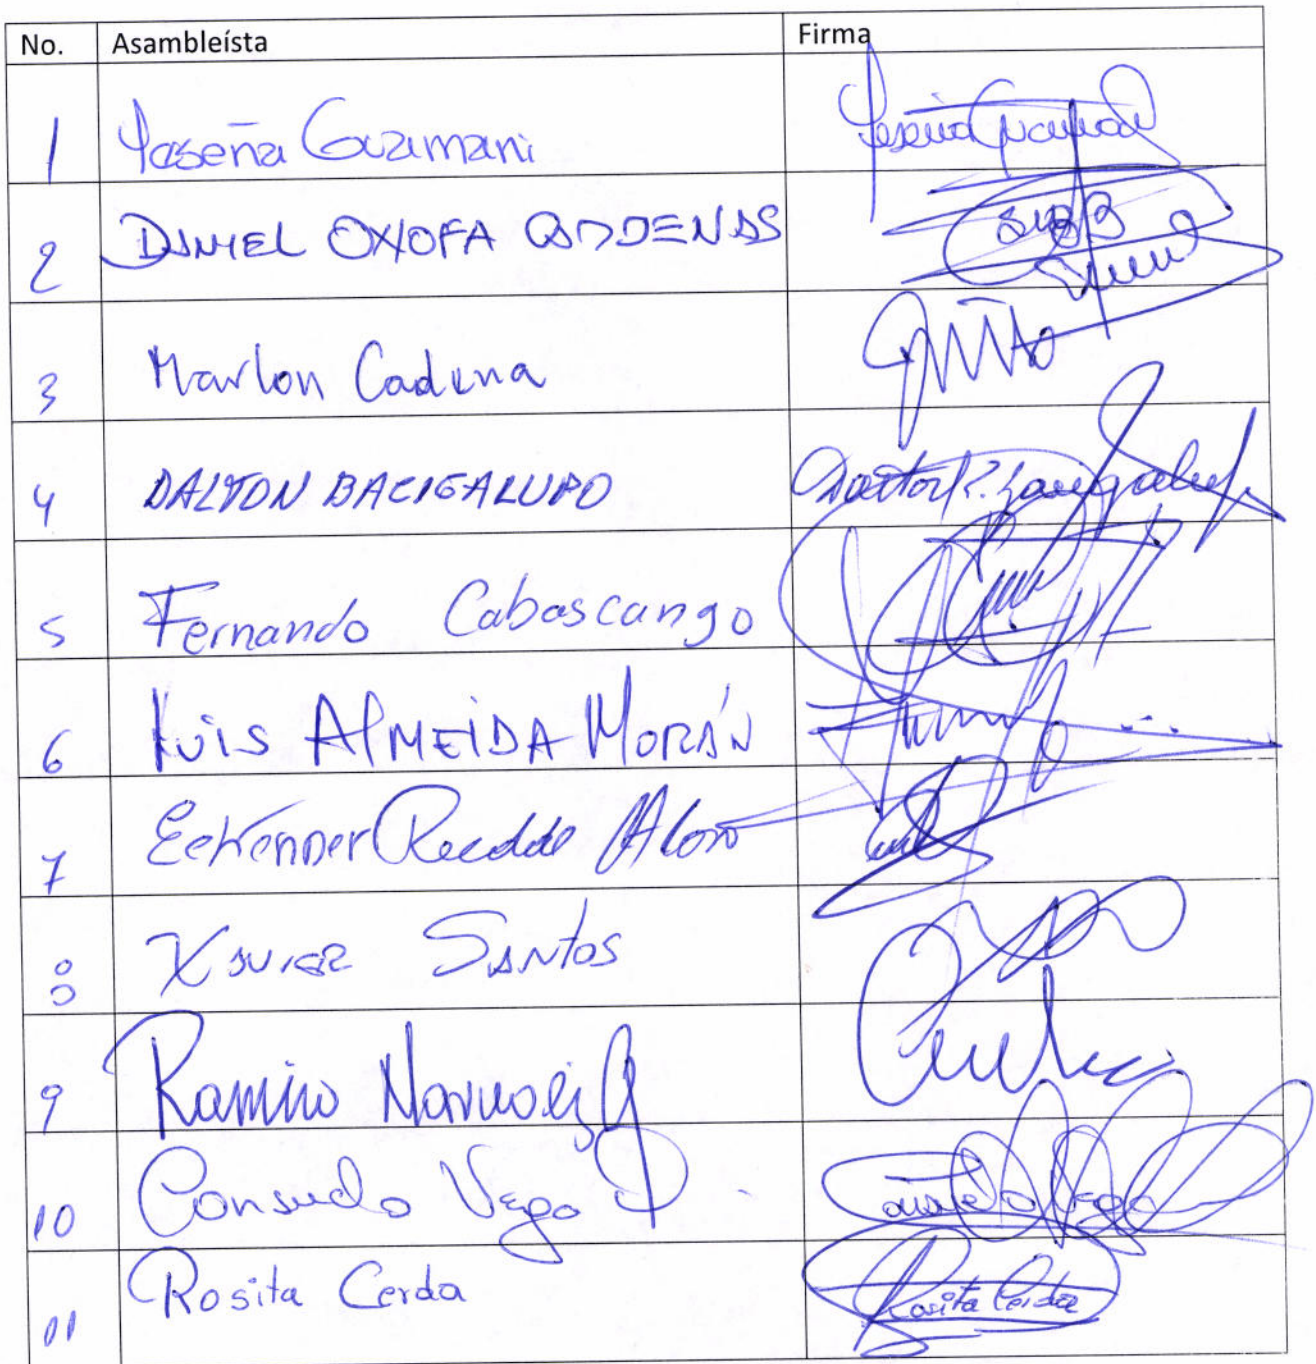 No. Asambleísta Firma
1 Yeseña Guamani
2 DANIEL OÑOFA CARDENAS
3 Marlon Cadena
4 DALTON BACIGALUPO
5 Fernando Cabascango
6 Luis ALMEIDA MORÁN
7 Eckenner Recalde Alava
8 XAVIER SANTOS
9 Ramiro Narváez G
10 Consuelo Vega Consuelo Vega
11 Rosita Cerda Rosita Cerda